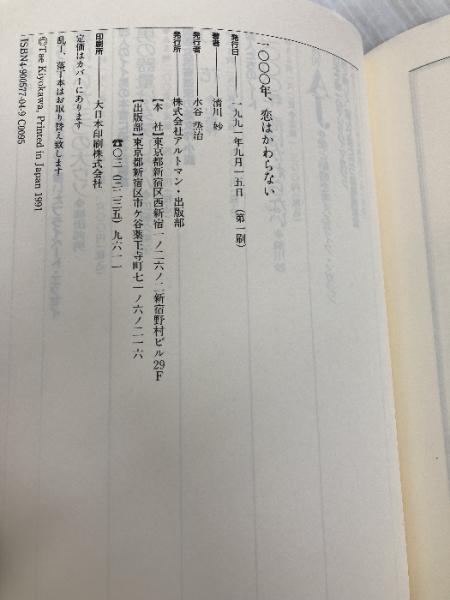 一〇〇〇年、恋はかわらない
発行日――一九九一年九月一五日 (第一刷)
著者――清川 妙
発行者――水谷
発行所――株式会社アルトマン・出版部
【本 社】東京都新宿区西新宿一ノ二六ノ二新宿野村ビル29F
【出版部】東京都新宿区市ケ谷薬王寺町七一ノ六ノ二一六
☎〇三(三二三五)九六一一
印刷所――大日本印刷株式会社
定価はカバーにあります
乱丁、落丁本はお取り替え致します
©Tae Kiyokawa, Printed in Japan 1991
ISBN4-900577-04-9 C0095